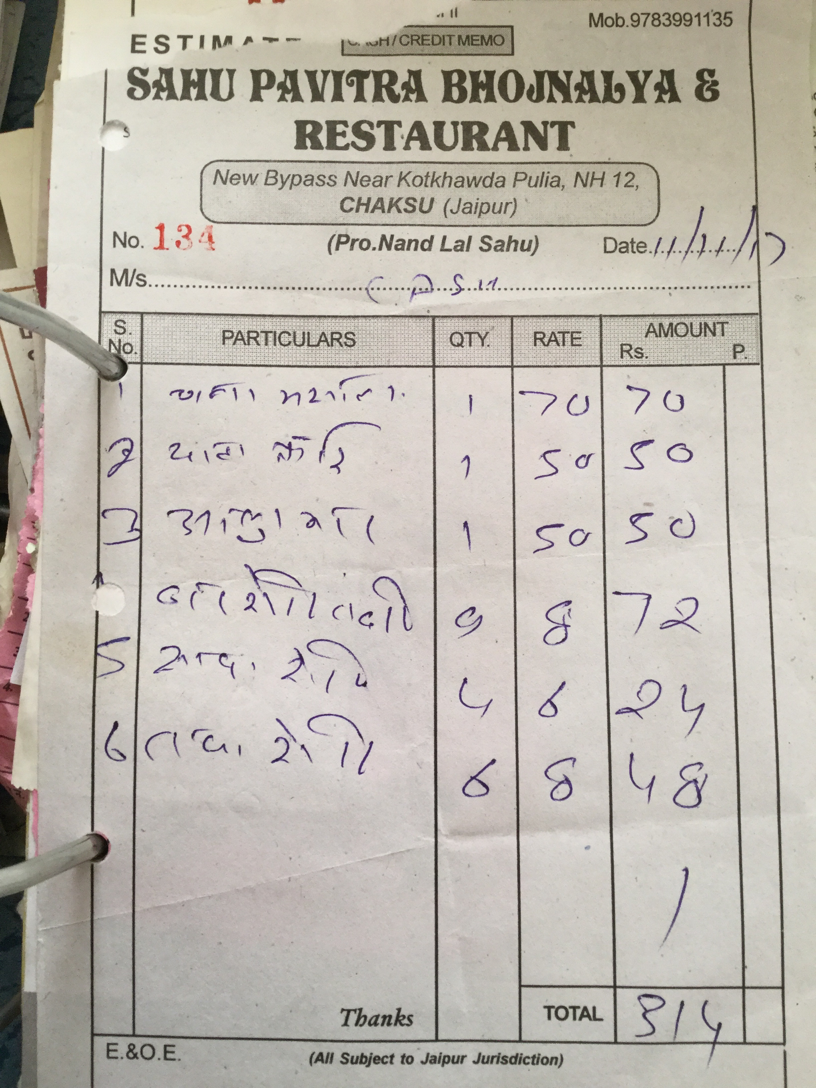 Mob.9783991135
ESTIMATE CASH/CREDIT MEMO
SAHU PAVITRA BHOJNALYA &
RESTAURANT
New Bypass Near Kotkhawda Pulia, NH 12,
CHAKSU (Jaipur)
No. 134 (Pro.Nand Lal Sahu) Date. 11/11/17
M/s. CASH
S. No. PARTICULARS QTY. RATE AMOUNT Rs. P.
1 चना मसाला 1 70 70
2 1 50 50
3 1 50 50
9 8 72
5 रोटी 4 6 24
6 तवा रोटी 6 8 48
Thanks TOTAL 314
E.&O.E. (All Subject to Jaipur Jurisdiction)